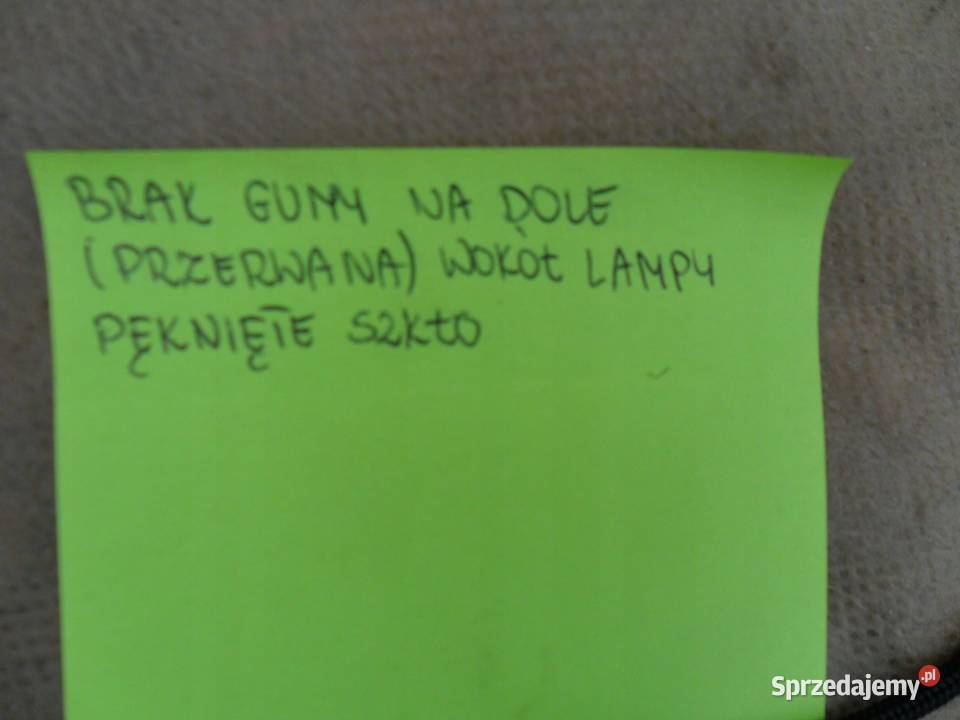 BRAK GUMY NA DOLE
(PRZERWANA) WOKÓŁ LAMPY
PĘKNIĘTE SZKŁO
Sprzedajemy.pl